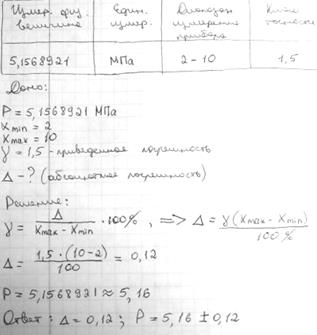 Измер. физ. величина | Един. измер. | Диапазон измерения прибора | Класс точности
5,1568921 | МПа | 2 - 10 | 1,5
Дано:
P = 5,1568921 МПа
Xmin = 2
Xmax = 10
γ = 1,5 - приведенная погрешность
Δ - ? (абсолютная погрешность)
Решение:
γ = Δ / (Xmax - Xmin) · 100%, => Δ = γ(Xmax - Xmin) / 100%
Δ = 1,5 · (10-2) / 100 = 0,12
P = 5,1568921 ≈ 5,16
Ответ: Δ = 0,12; P = 5,16 ± 0,12